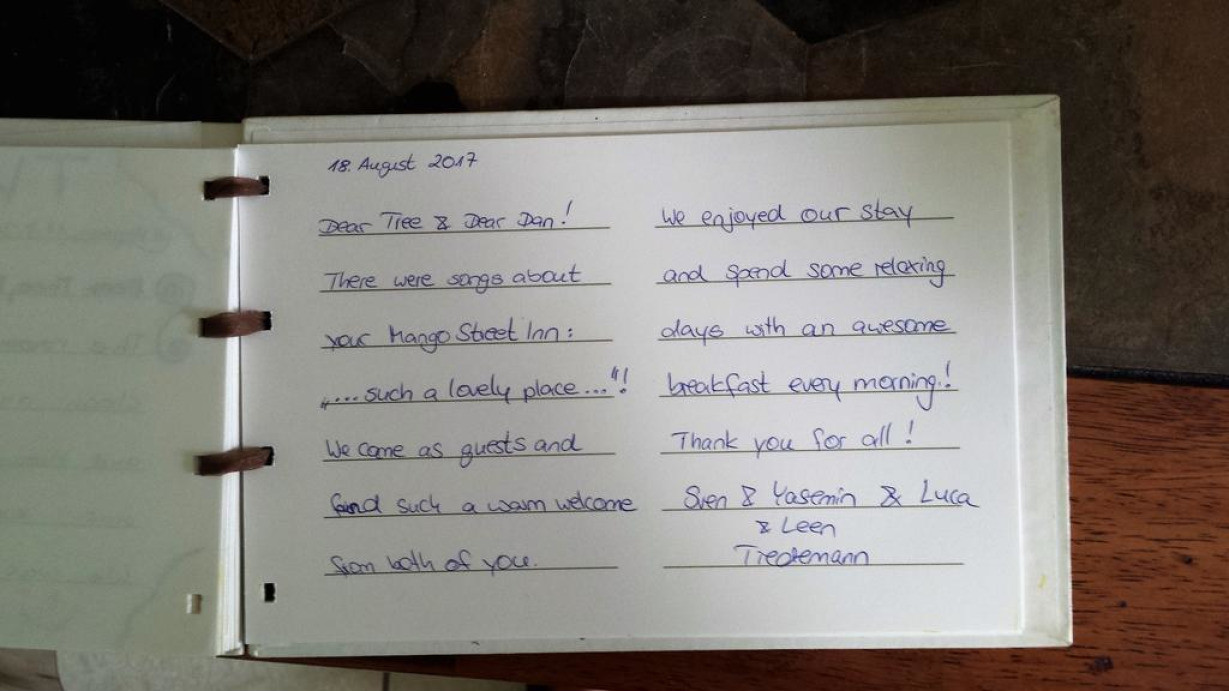 18. August 2017
Dear Tree & Dear Dan!
There were songs about
your Mango Street Inn:
„...such a lovely place..."!
We come as guests and
find such a warm welcome
from both of you.
We enjoyed our stay
and spend some relaxing
days with an awesome
breakfast every morning!
Thank you for all!
Sven & Yasemin & Luca
& Leen
Tiedemann